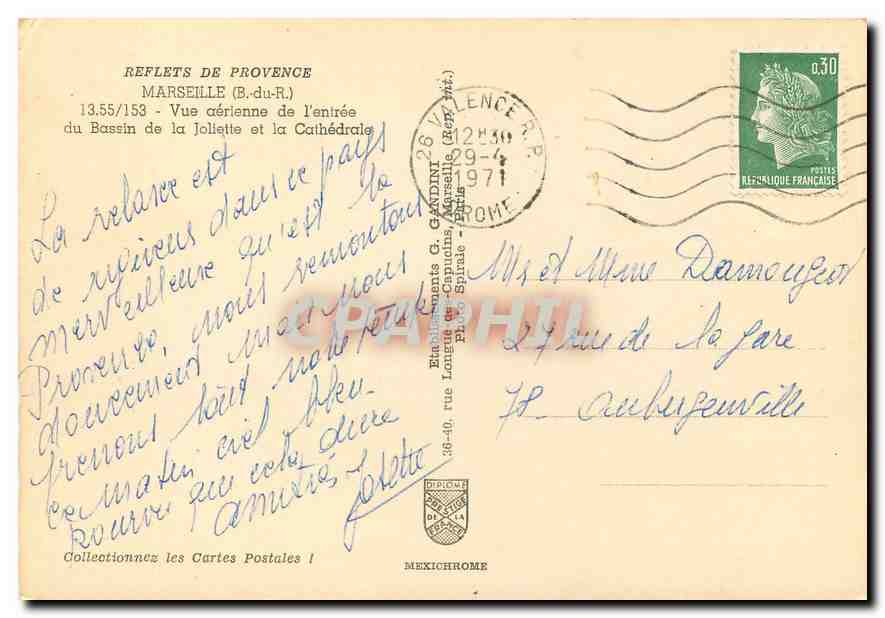 REFLETS DE PROVENCE
MARSEILLE (B.-du-R.)
13.55/153 - Vue aérienne de l'entrée
du Bassin de la Joliette et la Cathédrale
La relaxe est
de rigueur dans ce pays
merveilleuse qu'est la
Provence, nous remontons
doucement mais nous
prenons tout notre temps
ce matin ciel bleu
pourvu que cela dure
amitiés Josette
Collectionnez les Cartes Postales !
Etablissements G. GANDINI
36-40, rue Longue-des-Capucins, Marseille (Rep. int.)
Photo Spirale - Paris
DIPLOME
PRESTIGE
DE LA
FRANCE
MEXICHROME
26 VALENCE R.P.
12H30
29-4
1971
DROME
0,30
POSTES
REPUBLIQUE FRANÇAISE
Mr et Mme Damongeot
27 rue de la gare
78 - Aubergenville
CPAPHIL